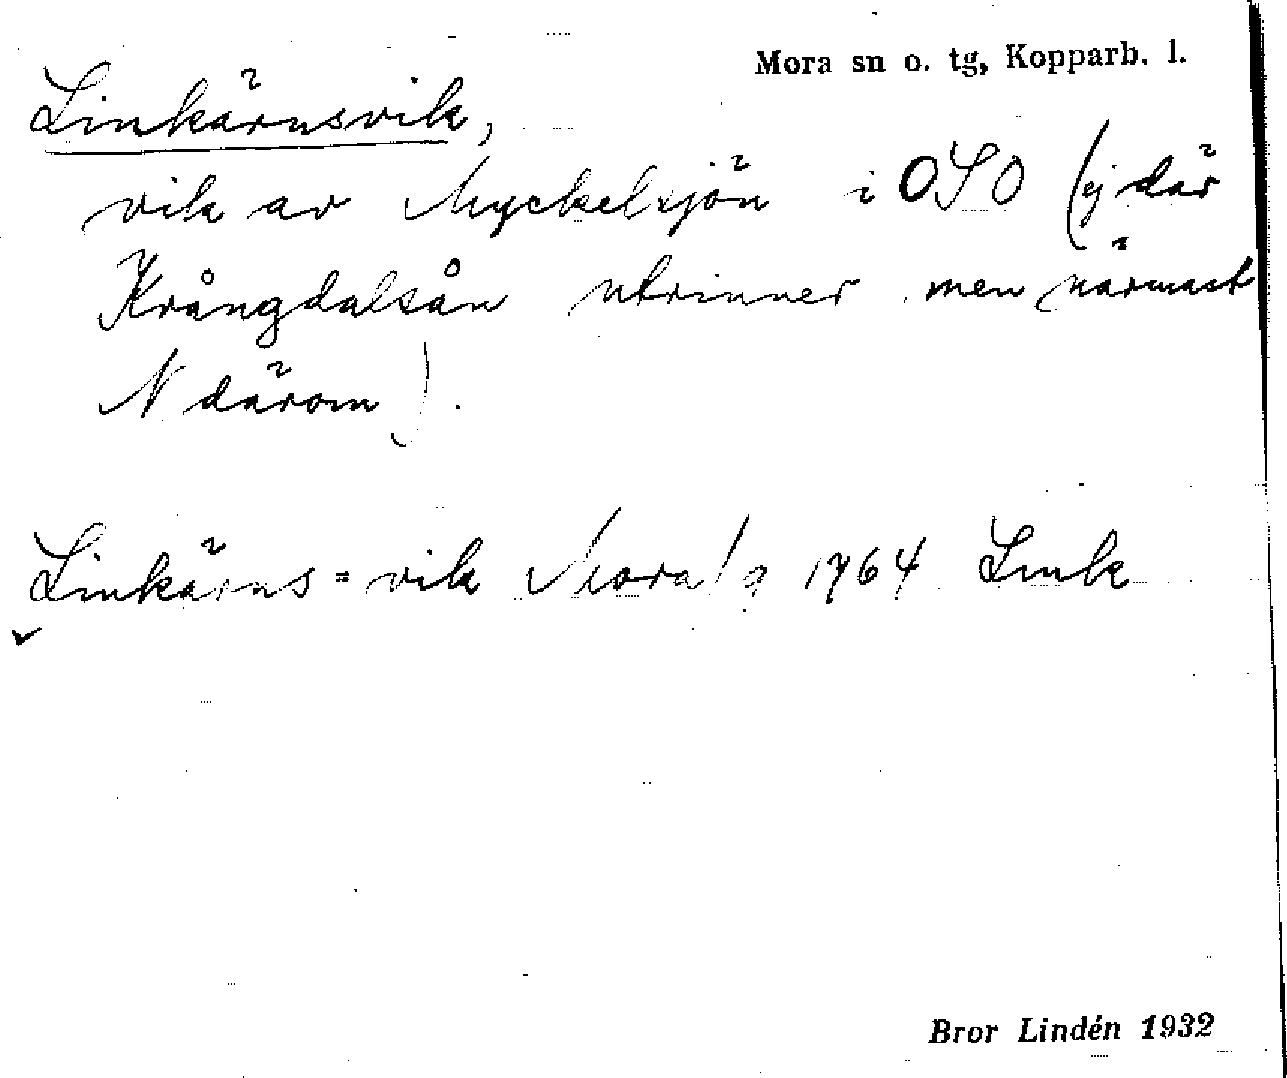 Mora sn o. tg, Kopparb. l.
Linkärnsvik,
vik av Myckelsjön i OSO (ej där
Krångdalsån utrinner men närmast
N därom).
Linkärns=vik Mora 1764 Link
Bror Lindén 1932